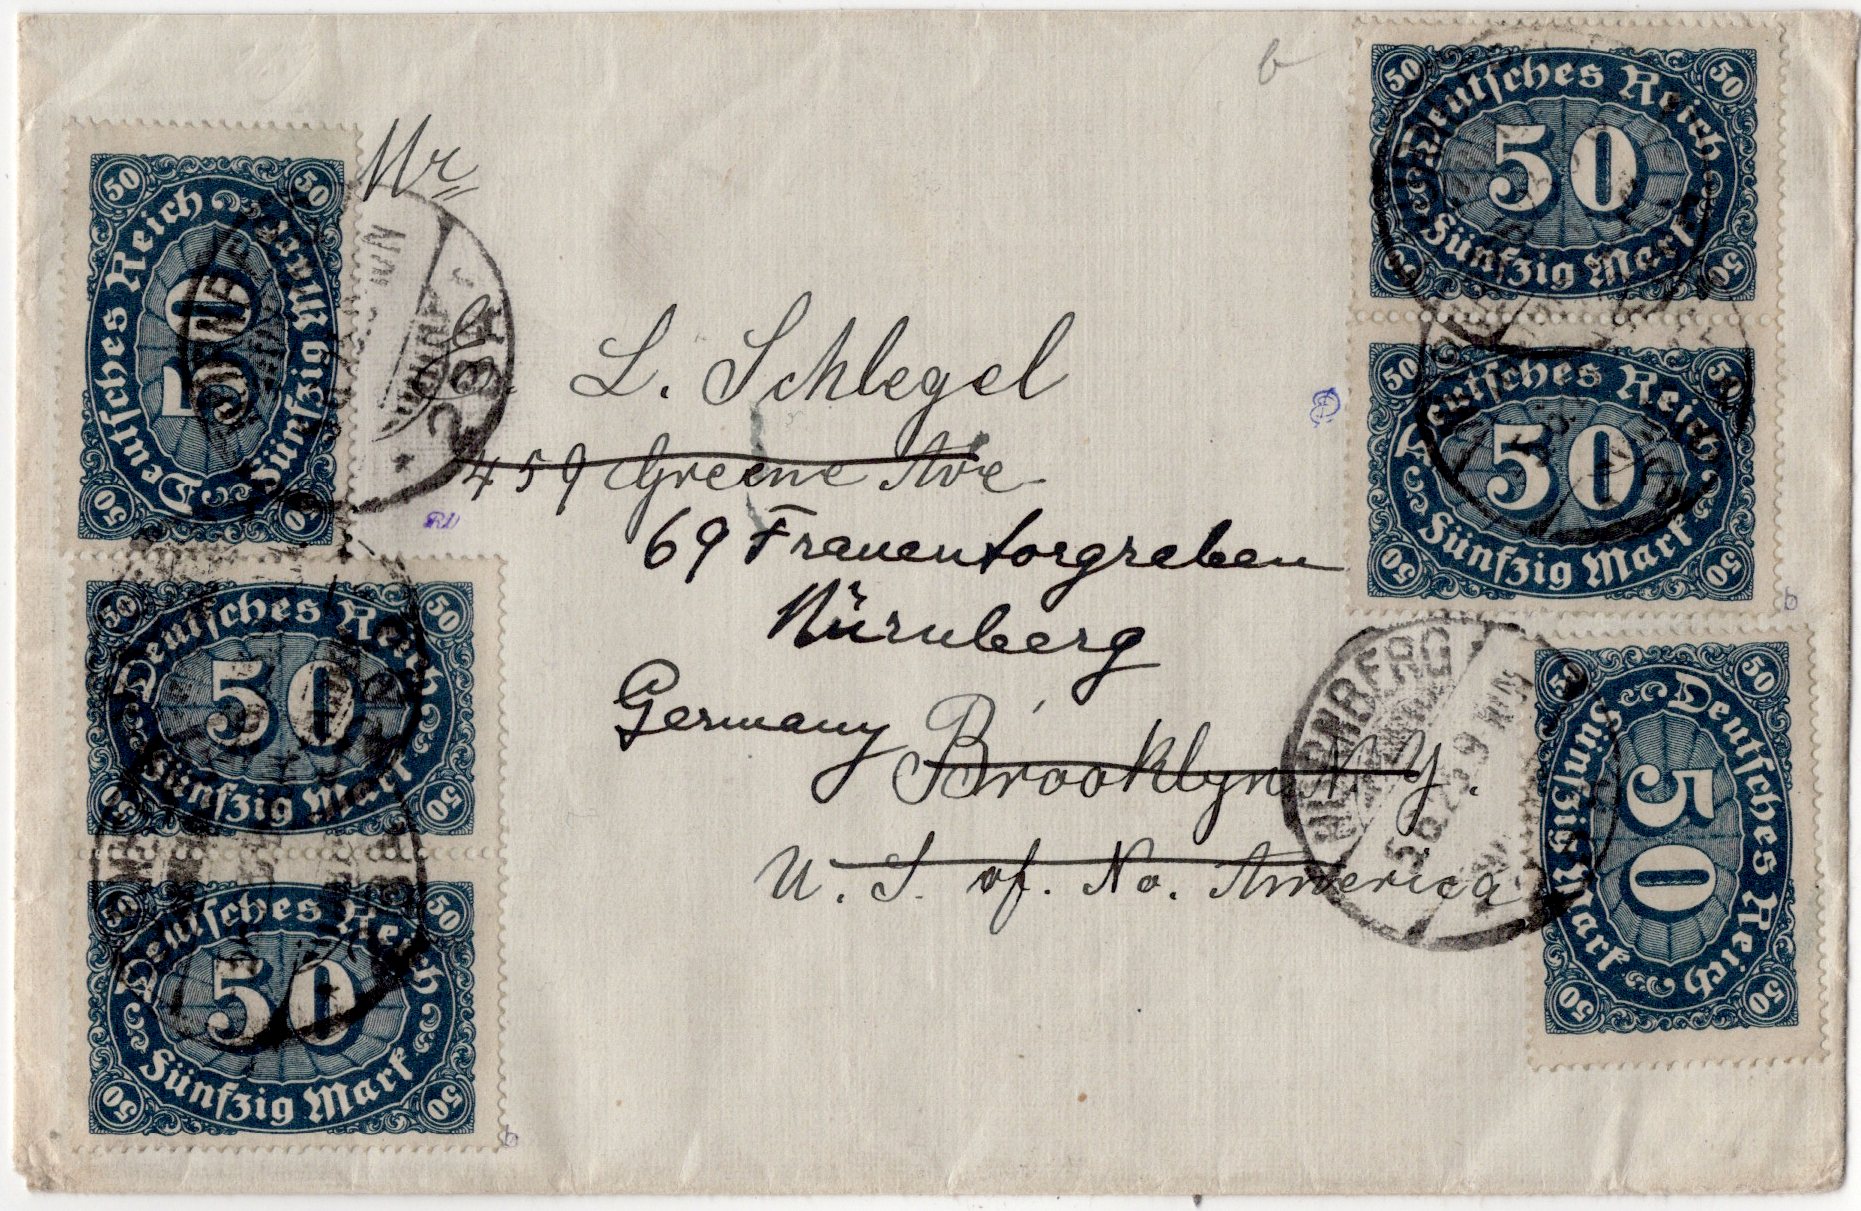 Mr
L. Schlegel
459 Greene Ave
69 Frauentorgraben
Nürnberg
Germany
Brooklyn N.Y.
U. S. of. No. America
50 50
Deutsches Reich
50
Fünfzig Mark
50 50
50 50
Deutsches Reich
50
Fünfzig Mark
50 50
50 50
Deutsches Reich
50
Fünfzig Mark
50 50
50 50
Deutsches Reich
50
Fünfzig Mark
50 50
50 50
Deutsches Reich
50
Fünfzig Mark
50 50
50 50
Deutsches Reich
50
Fünfzig Mark
50 50
NUERNBERG
2BP
b
b
b